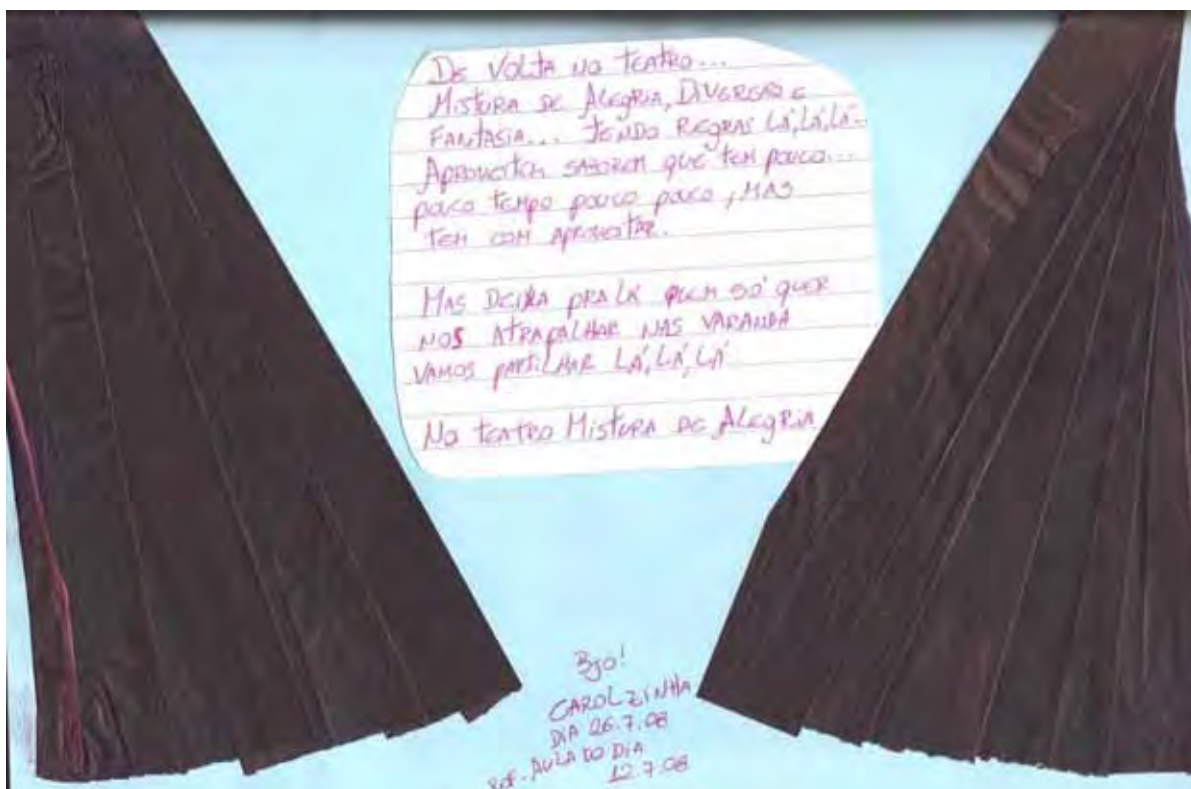 DE VOLTA NO TEATRO...
MISTURA DE ALEGRIA, DIVERSÃO E
FANTASIA... TENDO REGRAS LÁ, LÁ, LÁ...
APROVEITEM SABOREM QUE TEM POUCO...
POUCO TEMPO POUCO POUCO, MAS
TEM COM APROVEITAR.
MAS DEIXA PRA LÁ QUEM SÓ QUER
NOS ATRAPALHAR NAS VARANDA
VAMOS PARTILHAR LÁ, LÁ, LÁ
NO TEATRO MISTURA DE ALEGRIA
BJO!
CAROLZINHA
DIA 26.7.08
REF. AULA DO DIA
12.7.08